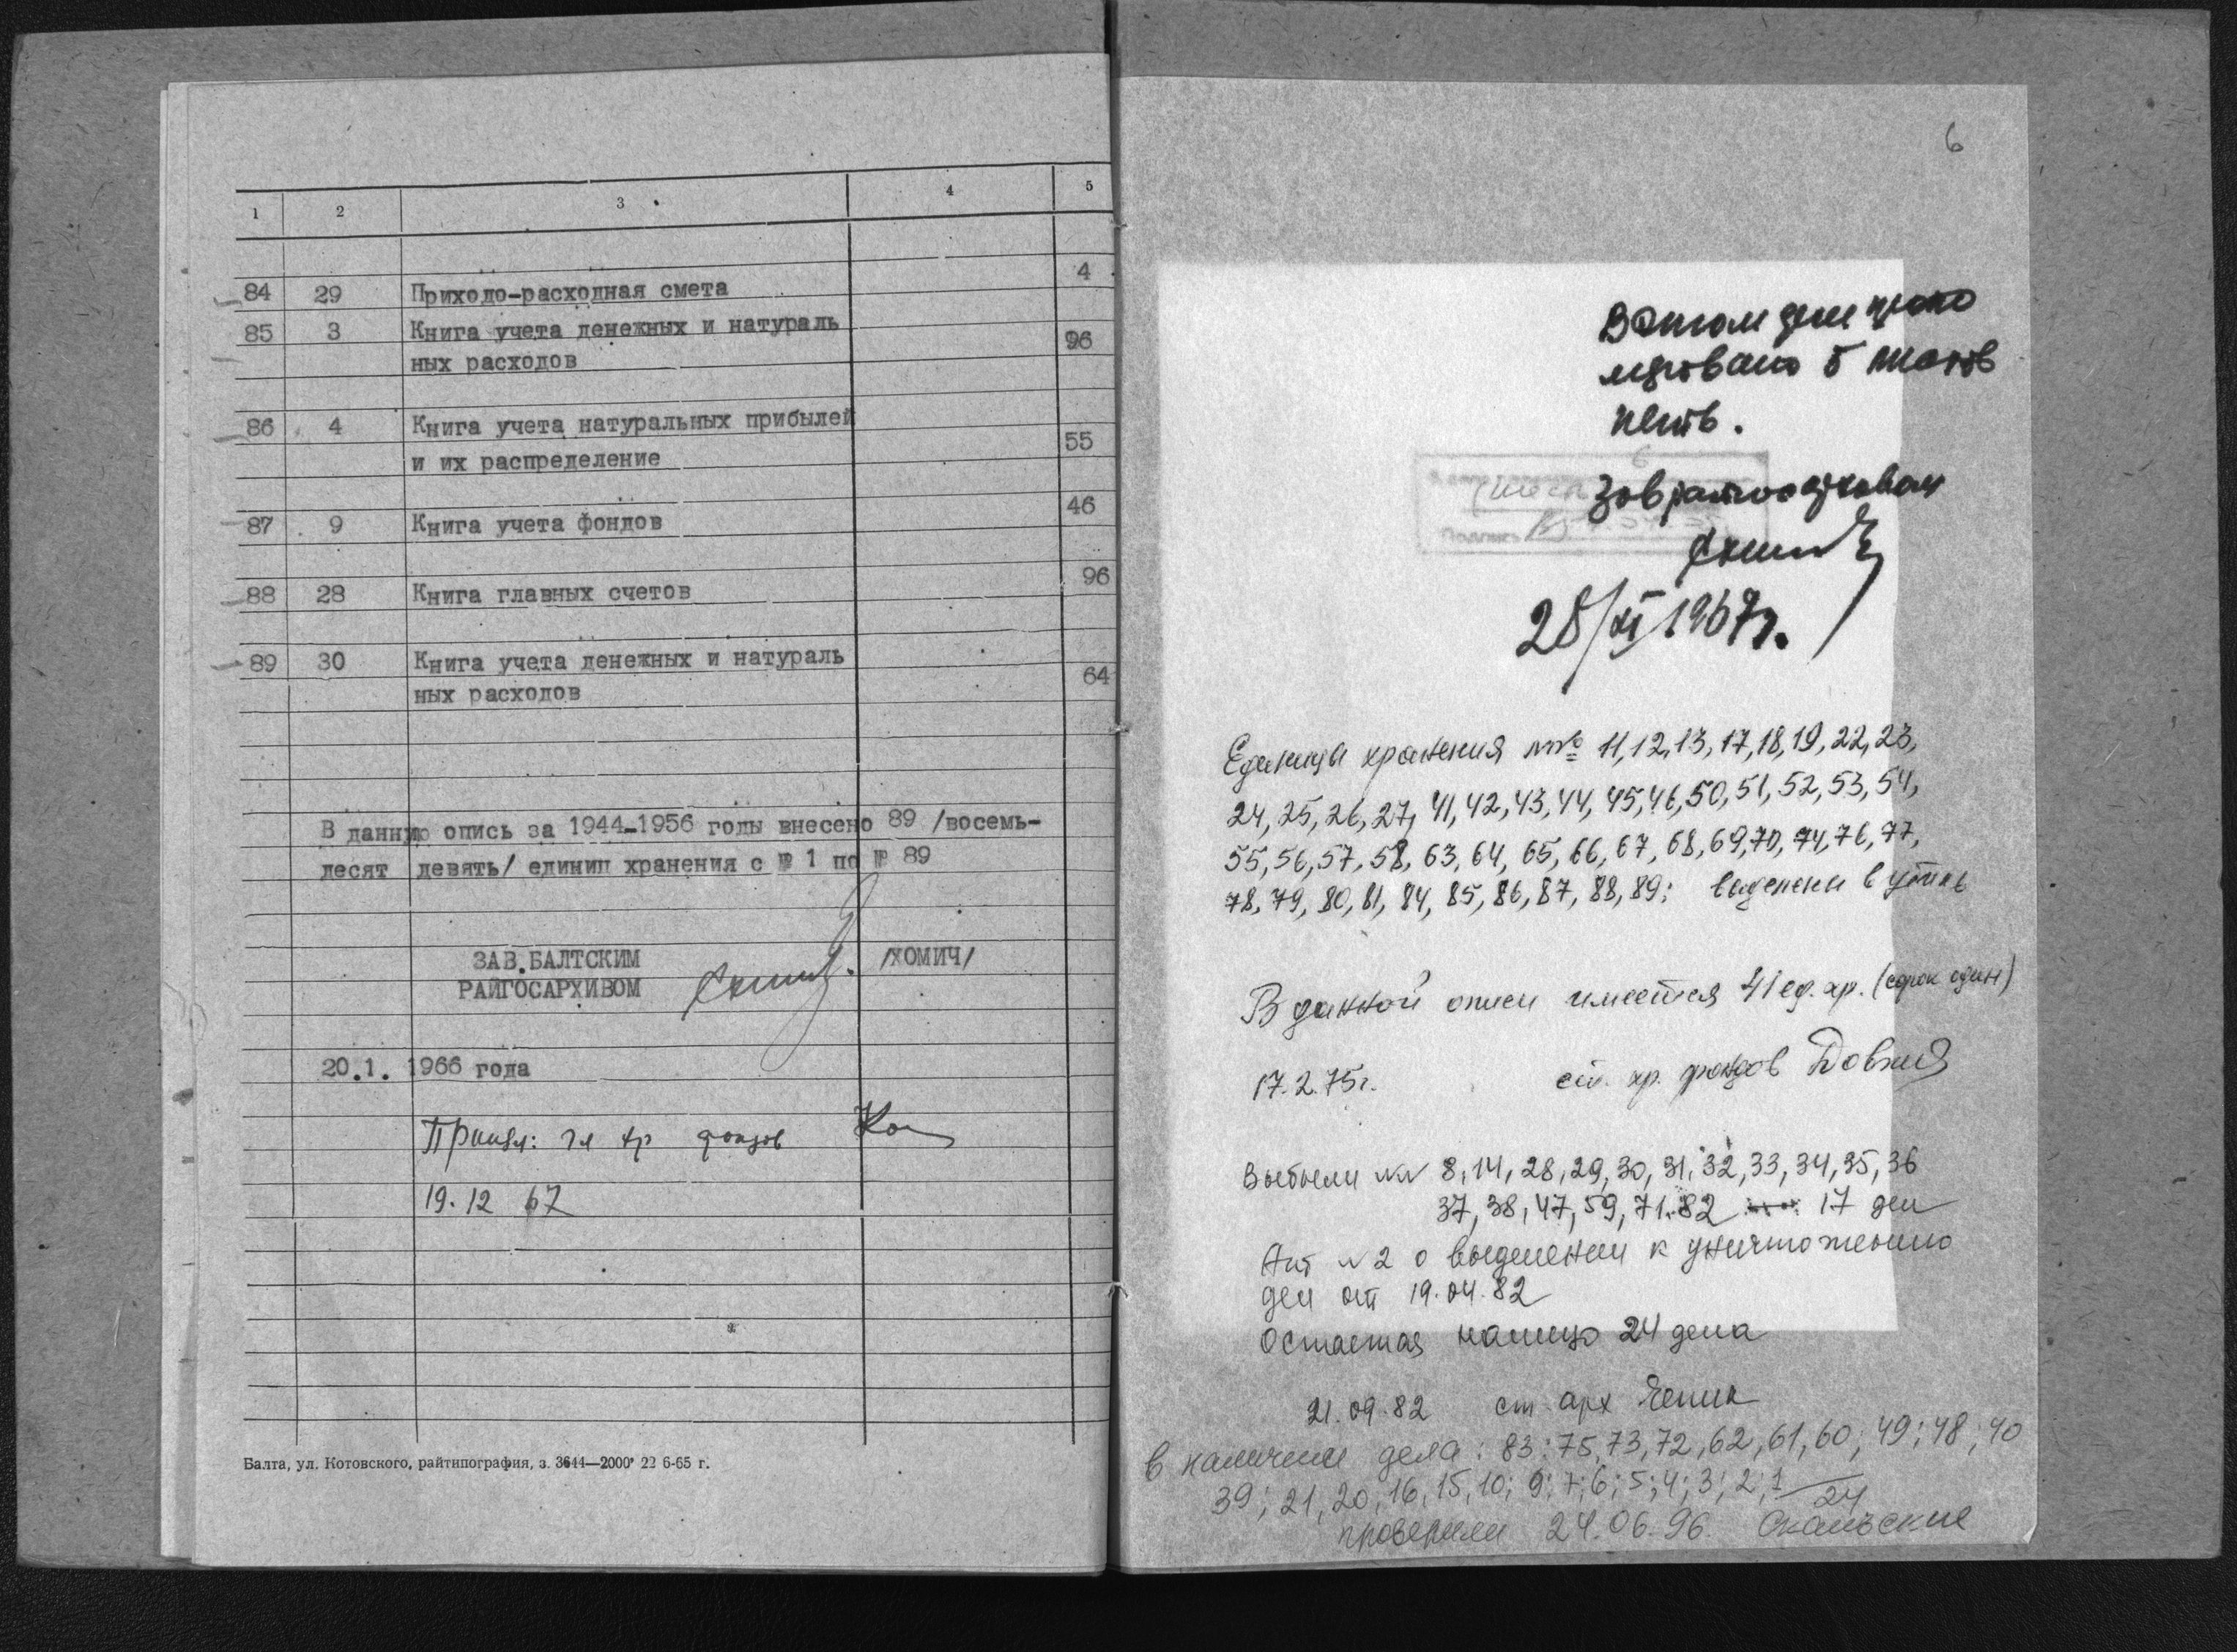 1 2 3 4 5
84 29 Приходо-расходная смета 4
85 3 Книга учета денежных и натураль
ных расходов 96
86 4 Книга учета натуральных прибылей
и их распределение 55
87 9 Книга учета фондов 46
88 28 Книга главных счетов 96
89 30 Книга учета денежных и натураль
ных расходов 64
В данную опись за 1944-1956 годы внесено 89 /восемь-
десят девять/ единиц хранения с № 1 по № 89
ЗАВ.БАЛТСКИМ
РАЙГОСАРХИВОМ /ХОМИЧ/
20.1. 1966 года
Принял: гл хр фондов
19.12 67
Балта, ул. Котовского, райтипография, з. 3644—2000 22 6-65 г.
6
В этом деле проно
меровано 5 листов
пять.
6
Подпись
28/XI 1967г.
Единицы хранения №№ 11, 12, 13, 17, 18, 19, 22, 23,
24, 25, 26, 27, 41, 42, 43, 44, 45, 46, 50, 51, 52, 53, 54,
55, 56, 57, 58, 63, 64, 65, 66, 67, 68, 69, 70, 74, 76, 77,
78, 79, 80, 81, 84, 85, 86, 87, 88, 89; выделены в утиль
В данной описи имеется 41 ед. хр. (сорок один)
17.2.75г. ст. хр. фондов
Выбыли №№ 8, 14, 28, 29, 30, 31, 32, 33, 34, 35, 36
37, 38, 47, 59, 71, 82 17 дел
Акт № 2 о выделении к уничтожению
дел от 19.04.82
Остается налицо 24 дела
21.09.82 ст арх
в наличии дела: 83; 75, 73, 72, 62, 61, 60; 49; 48; 40
39; 21, 20, 16, 15, 10; 9; 7; 6; 5; 4; 3; 2; 1
24
проверили 24.06.96.